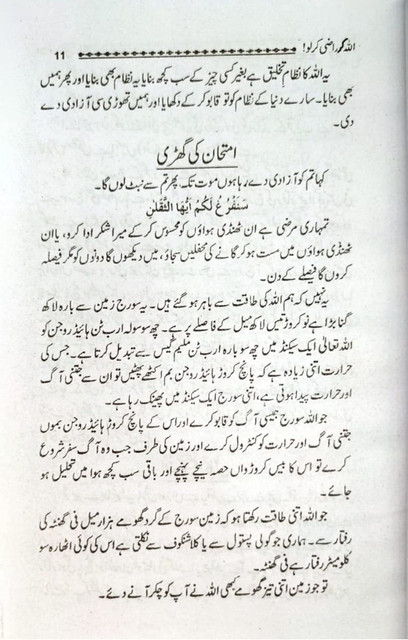 اللہ کو راضی کر لو! 11
یہ اللہ کا نظام تخلیق ہے بغیر کسی چیز کے سب کچھ بنایا یہ نظام بھی بنایا اور پھر ہمیں
بھی بنایا۔ سارے دنیا کے نظام کو تو قابو کر کے دکھایا اور ہمیں تھوڑی سی آزادی دے
دی۔
امتحان کی گھڑی
کہا تم کو آزادی دے رہا ہوں موت تک، پھر تم سے نبٹ لوں گا۔
سَنَفْرُغُ لَكُمْ اَيُّهَا الثَّقَلٰنِ
تمہاری مرضی ہے ان ٹھنڈی ہواؤں کو محسوس کر کے میرا شکر ادا کرو، یا ان
ٹھنڈی ہواؤں میں مست ہو کر گانے کی محفلیں سجاؤ، میں دیکھوں گا دونوں کو مگر فیصلہ
کروں گا فیصلے کے دن۔
یہ نہیں کہ ہم اللہ کی طاقت سے باہر ہو گئے ہیں۔ یہ سورج زمین سے بارہ لاکھ
گنا بڑا ہے نو کروڑ تیس لاکھ میل کے فاصلے پر ہے۔ چھ سو سولہ ارب ٹن ہائیڈروجن کو
اللہ تعالیٰ ایک سیکنڈ میں چھ سو بارہ ارب ٹن ہیلیم گیس سے تبدیل کرتا ہے۔ جس کی
حرارت اتنی زیادہ ہے کہ پانچ کروڑ ہائیڈروجن بم اکٹھے پھٹیں تو ان سے جتنی آگ
اور حرارت پیدا ہوتی ہے، اتنی سورج ایک سیکنڈ میں پھینک رہا ہے۔
جو اللہ سورج جیسی آگ کو قابو کرے اور اس کے پانچ کروڑ ہائیڈروجن بموں
جتنی آگ اور حرارت کو کنٹرول کرے اور زمین کی طرف جب وہ آگ سفر شروع
کرے تو اس کا بیس کروڑواں حصہ نیچے پہنچے اور باقی سب کچھ ہوا میں تحلیل ہو
جائے۔
جو اللہ اتنی طاقت رکھتا ہو کہ زمین سورج کے گرد گھومے ہزار میل فی گھنٹہ کی
رفتار سے۔ ہماری جو گولی پستول سے یا کلاشنکوف سے نکلتی ہے اس کی کوئی اٹھارہ سو
کلو میٹر رفتار ہے فی گھنٹہ۔
تو جو زمین اتنی تیز گھومے بھی اللہ نے آپ کو چکر آنے دئے۔